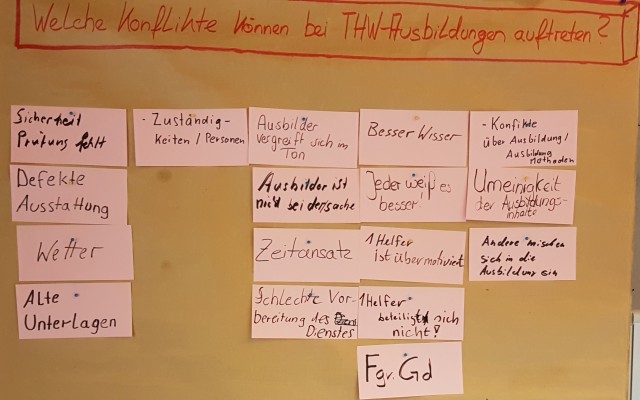 Welche Konflikte können bei THW-Ausbildungen auftreten?
Sicherheit
Prüfung fehlt
Defekte
Ausstattung
Wetter
Alte
Unterlagen
- Zuständig-
keiten / Personen
Ausbilder
vergreift sich im
Ton
Ausbilder ist
nicht bei der sache
Zeitansatz
Schlechte Vor-
bereitung des
Dienstes
Besser Wisser
Jeder weiß es
besser!
1 Helfer
ist über motiviert
1 Helfer
beteiligt sich
nicht!
Fgr. Gd
- Konflikte
über Ausbildung /
Ausbildung
methoden
Umeinigkeit
der Ausbildungs-
inhalte
Andere mischen
sich in die
Ausbildung ein